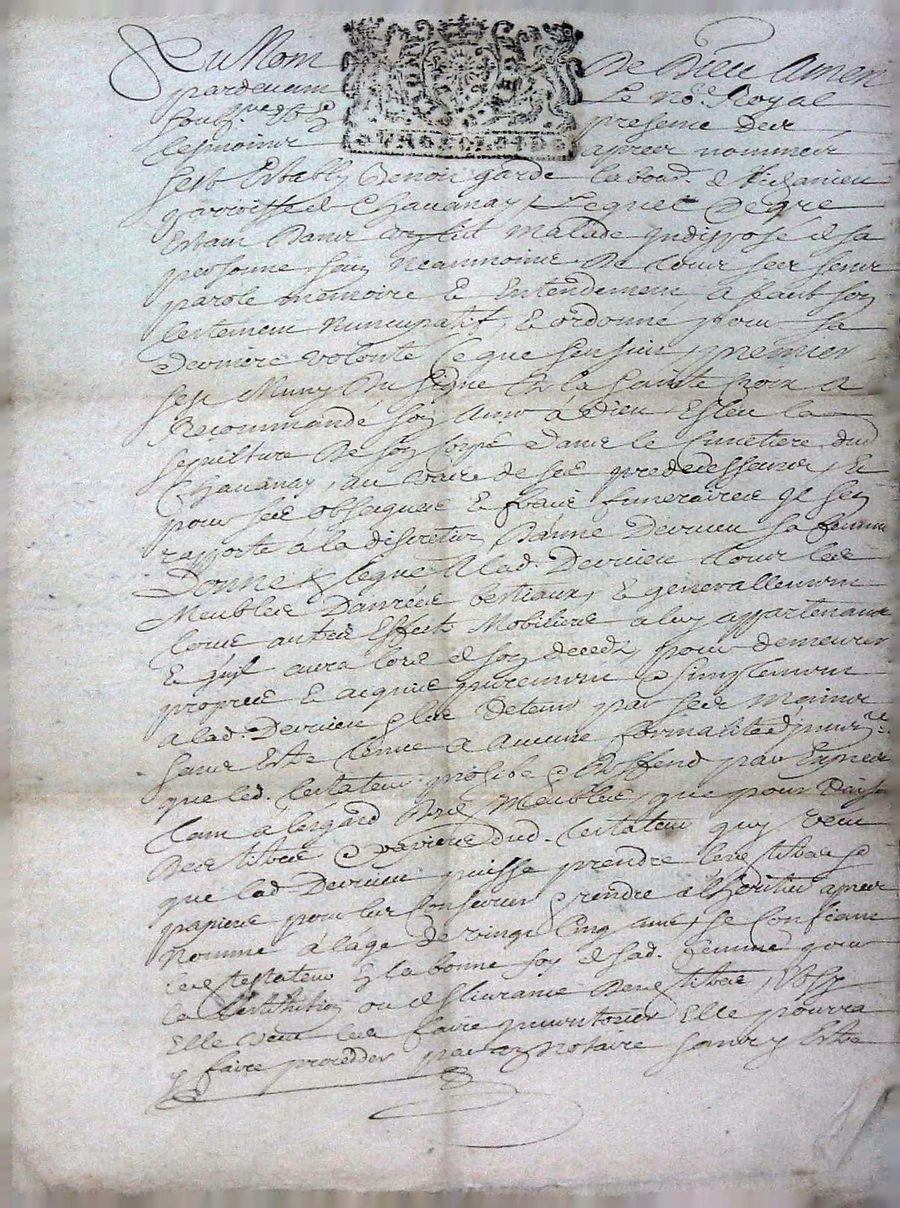 Au Nom De Dieu Amen
pardevant Le no.re Royal
soub.ne presens des
tesmoins apres nommés
sest Estably Benoit garde labour. de
parroisse de Chavanay, Lequel De gré
Estant Dans un lict malade indisposé de sa
personne, sain neanmoins De tous ses sens
parole memoire & Entendement a faict son
testament nuncupatif, & ordonné pour sa
Derniere volonté Ce que sensuit, premier
sest Muny Du signe De la Sainte Croix a
Recommandé son Ame à Dieu, Esleu la
sepulture De son Corps Dans le simetiere dud.
Chavanay, au vaze de ses predecesseurs, &
pour ses obseques & frais funeraires Il sen
rapporte a la discretion Danne Devrieu sa femme
Donne & legue A lad. Devrieu tous les
Meubles Danrées bestiaux, & generallement
tous autres Effects Mobiliers a luy appartenants
& quil aura lors de son deces, pour demeurer
propres & acquis purement & simplement
a lad. Devrieu & les detenir par ses mains
sans Estre tenue a aucune formalité de justice
que led. testateur prohibe & Deffend par Expres
tant a legard Des Meubles, que pour
Des titres & papiers dud. testateur qui veut
que lad Devrieu puisse prendre les titres &
papiers pour les Conserver & rendre a lheritier apres
Nommé à lâge de vingt Cinq ans, se Confiant
led testateur En la bonne foy de sad. femme pour
la Restitution ou deslivrance Des titres, Et sy
Elle veut les faire inventorier Elle pourra
y faire proceder par un Notaire sans y Estre